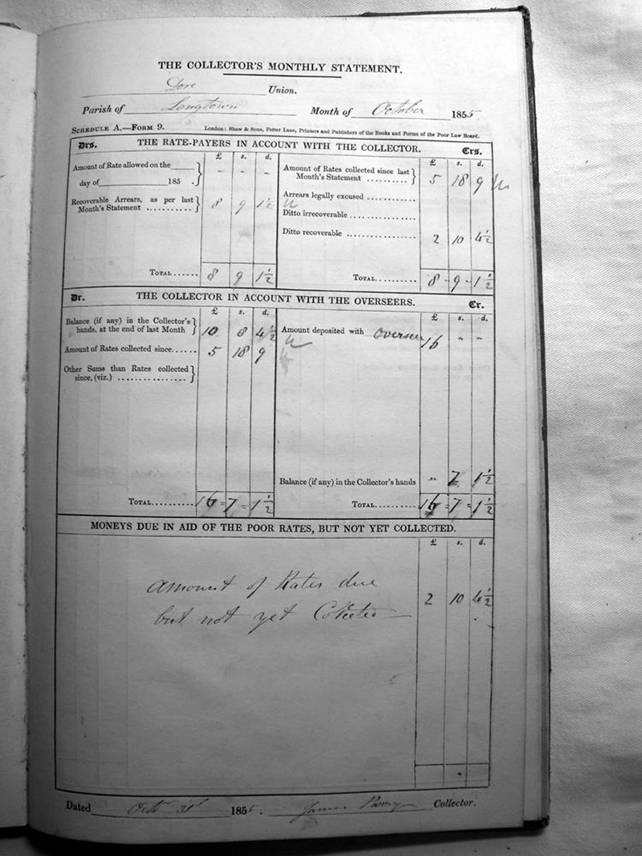 THE COLLECTOR'S MONTHLY STATEMENT.
Dore Union.
Parish of Longtown Month of October 1855
SCHEDULE A.—FORM 9. London: Shaw & Sons, Fetter Lane, Printers and Publishers of the Books and Forms of the Poor Law Board.
Drs. THE RATE-PAYERS IN ACCOUNT WITH THE COLLECTOR. Crs.
£ s. d. £ s. d.
Amount of Rate allowed on the
day of 185 . } - - -
Amount of Rates collected since last
Month's Statement .......... } 5 18 9
Recoverable Arrears, as per last
Month's Statement .......... } 8 9 1½
Arrears legally excused ............
Ditto irrecoverable ................
Ditto recoverable .................. 2 10 4½
TOTAL...... 8 9 1½ TOTAL.......... 8 - 9 - 1½
Dr. THE COLLECTOR IN ACCOUNT WITH THE OVERSEERS. Cr.
£ s. d. £ s. d.
Balance (if any) in the Collector's
hands, at the end of last Month } 10 8 4½
Amount deposited with Overseer 16 " "
Amount of Rates collected since...... 5 18 9
Other Sums than Rates collected
since, (viz.) ................. }
Balance (if any) in the Collector's hands " 7 1½
TOTAL.......... 16 = 7 = 1½ TOTAL............ 16 - 7 = 1½
MONEYS DUE IN AID OF THE POOR RATES, BUT NOT YET COLLECTED.
£ s. d.
Amount of Rates due
but not yet Collected 2 10 4½
Dated Octr 31st 1855. James Collector.